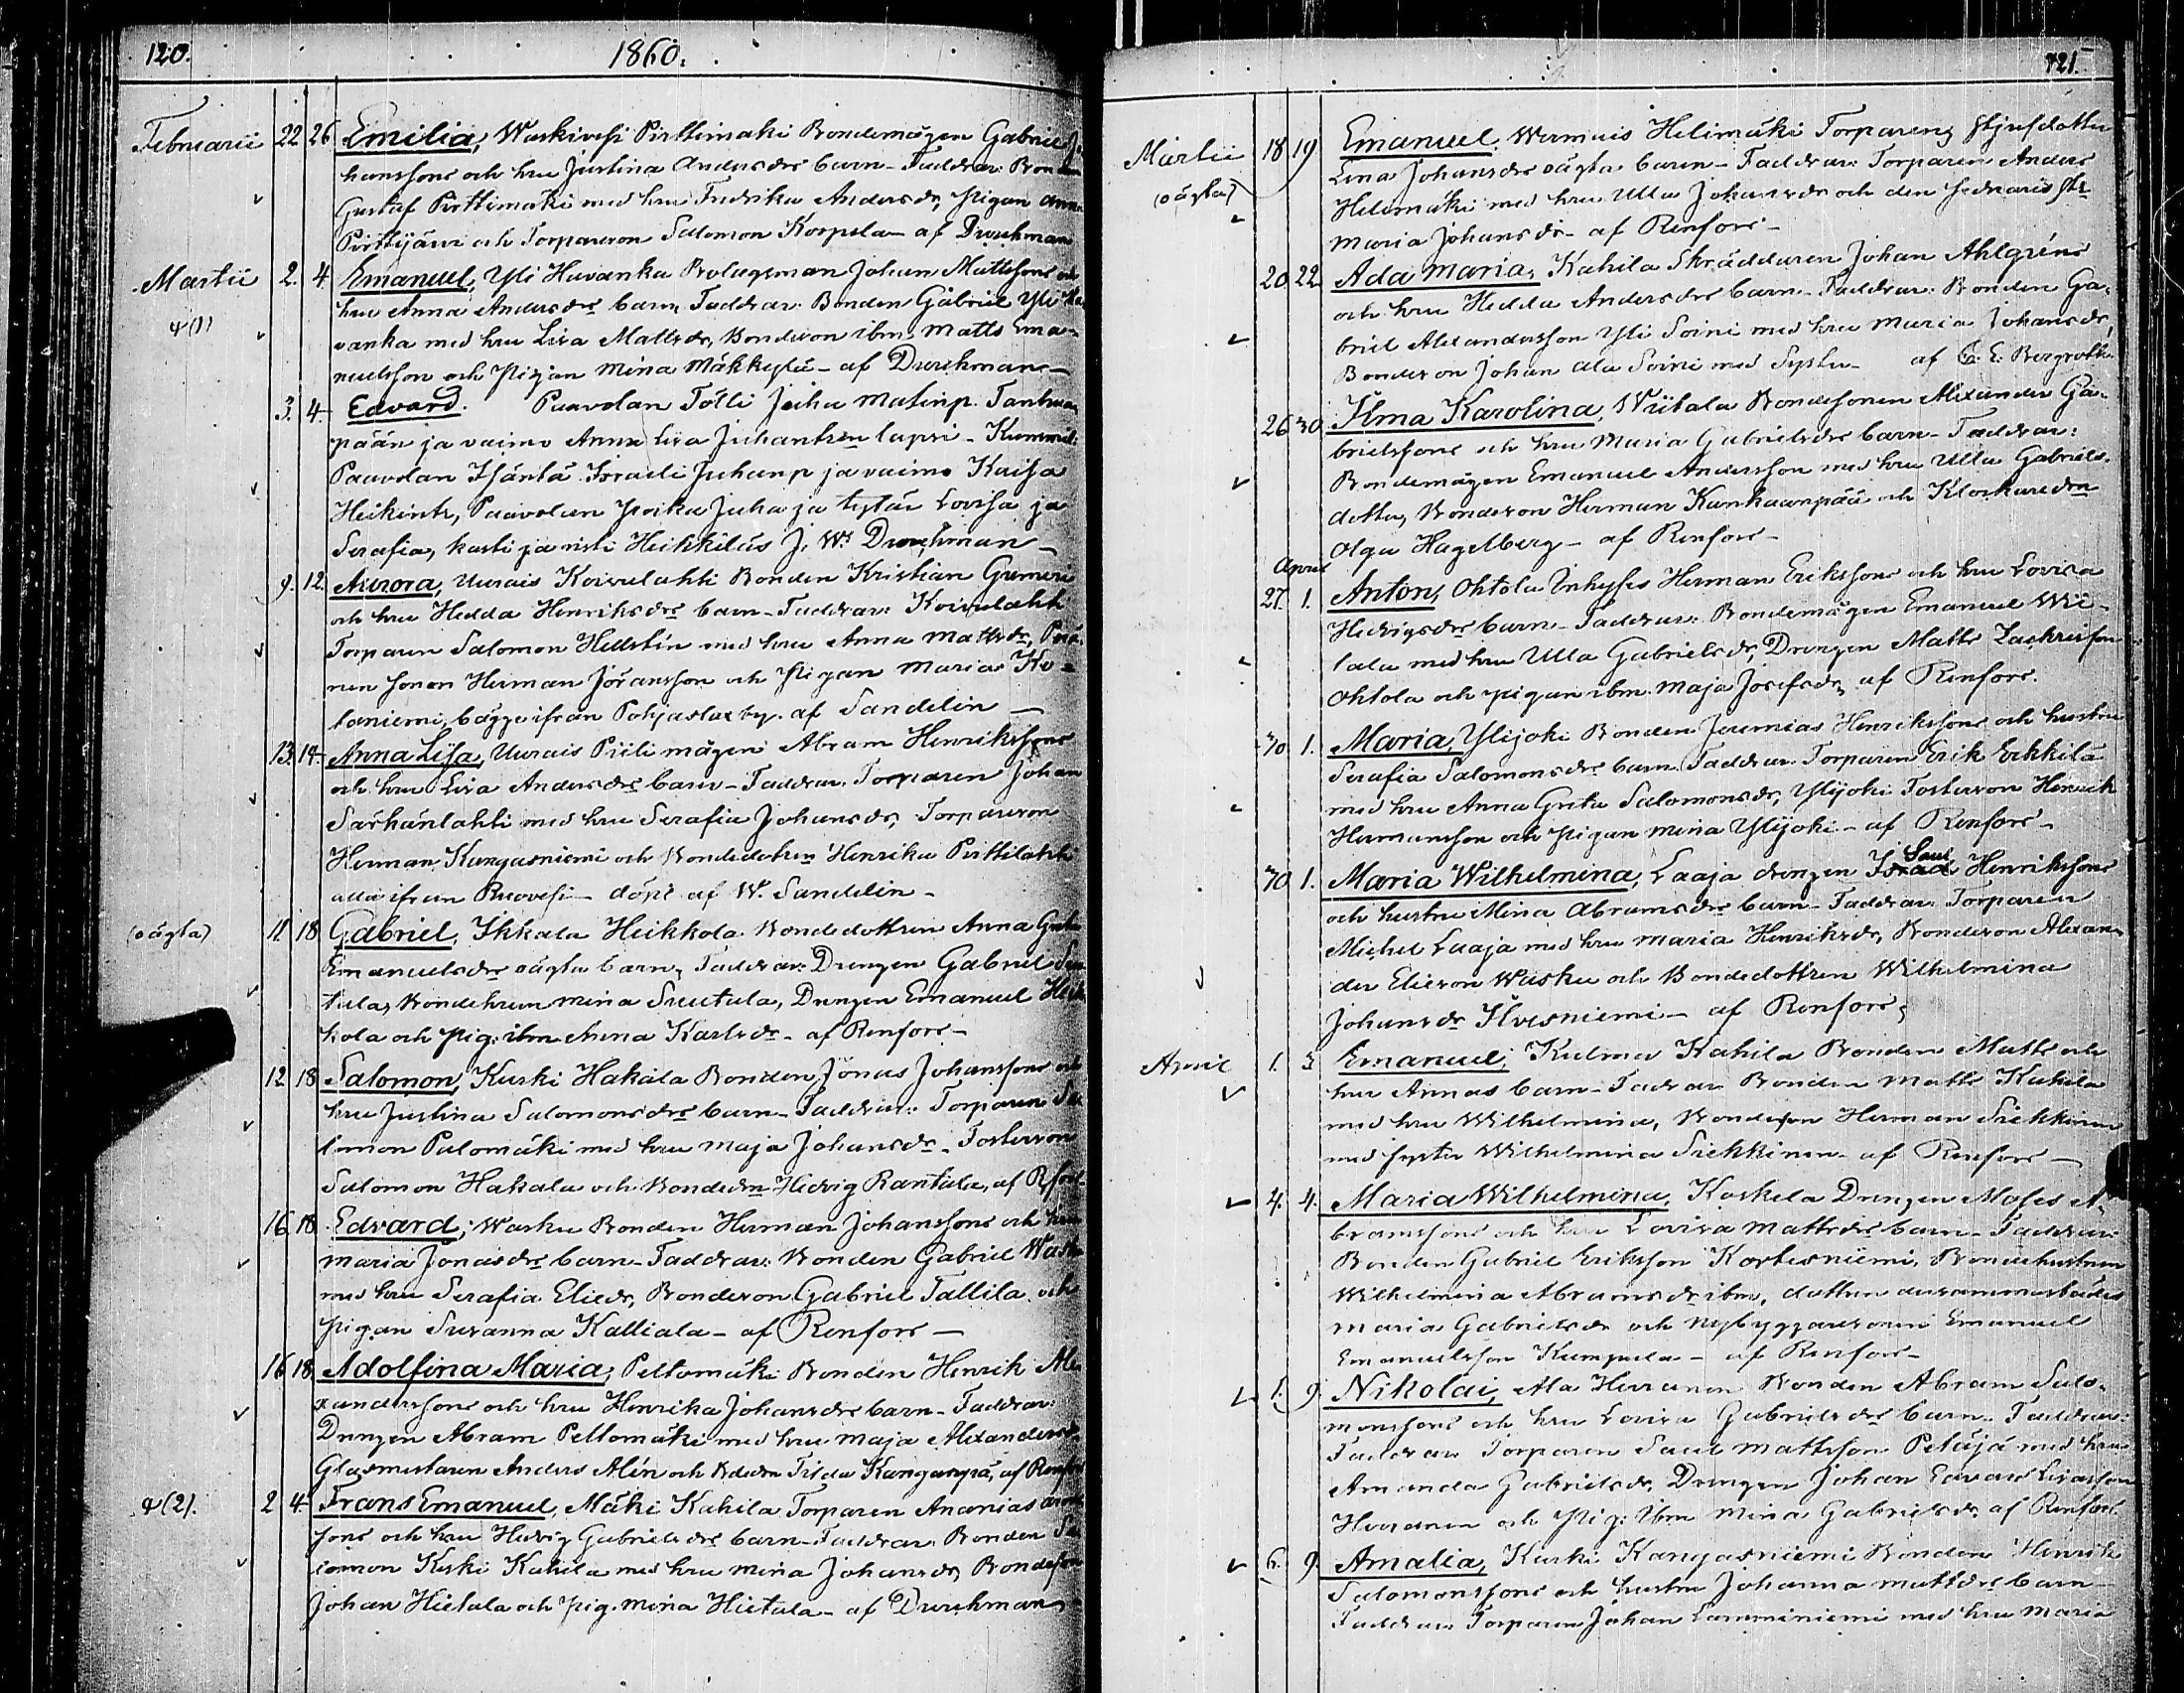 120.
1860.
Februarii 22 26 Emilia, Waskivesi Pirttimäki Bondemågen Gabriel Jo-
hanssons och hru Justina Andersdrs barn - Faddrar: Bonden
Gustaf Pirttimäki med hru Fredrika Andersdr, Pigan Anna
och Torpareson Salomon Korpela - af Durchman
Martii 2. 4. Emanuel, Yli Havanka Bolagsman Johan Mattssons och
hru Anna Andersdrs barn, Faddrar: Bonden Gabriel Yli Ha-
vanka med hru Lisa Mattsdr, Bondeson ibm Matts Ema-
nuelsson och Pigan Mina Mäkkylä - af Durchman -
3. 4. Edvard. Paavolan Tölli Juha Matinp.
pään ja vaimo Anna Lisa Juhantr:n lapsi - Kummit:
Paavolan Isäntä Israeli Juhanp ja vaimo Kaisa
Heikintr, Paavolan Poika Juha ja tytär Lovisa ja
Serafia, kasti ja risti Heikkiläs J. W. Durchman -
9. 12. Aurora, Uurais Koivulahti Bonden Kristian
och hru Hedda Henriksdrs barn - Faddrar: Koivulahti
Torparen Salomon Hellstén med hru Anna Mattsdr,
sonen Herman Jöransson och Pigan Maria
taniemi, bägge ifrån Pohjaslax by. af Sandelin -
13. 14. Anna Lisa, Uurais Piili mågen Abram Henrikssons
och hru Lisa Andersdrs barn - Faddrar: Torparen Johan
Särkänlahti med hru Serafia Johansdr, Torpareson
Herman Kangasniemi och Bondedottren Henrika Pirttilahti
alla ifrån Ruovesi - döpt af W. Sandelin -
(oägta) 11. 18. Gabriel, Ikkala Heikkola Bondedottren Anna Greta
Emanuelsdrs oägta barn, Faddrar: Drengen Gabriel
tula, Bondehrun Mina Suutala, Drengen Emanuel Heik-
kola och Pig: ibm Anna Karlsdr - af Renfors -
12 18 Salomon, Kurki Hakala Bonden Jonas Johanssons och
hru Justina Salomonsdrs barn - Faddrar: Torparen Sa-
lomon Palomäki med hru Maja Johansdr - Fosterson
Salomon Hakala och Bondedn Hedvig Rantala, af Rfors
16 18. Edvard, Wasku Bonden Herman Johanssons och hru
Maria Jonasdrs barn - Faddrar: Bonden Gabriel Wasku
med hru Serafia Eliedr, Bondeson Gabriel Tallila och
Pigan Susanna Kalliala - af Renfors -
16 18 Adolfina Maria, Peltomäki Bonden Henrik Ale-
xanderssons och hru Henrika Johansdrs barn - Faddrar:
Drengen Abram Peltomäki med hru Maja Alexandersdr
Glasmestaren Anders Alén och Bdedn Tilda Kangaspä, af Renfors
(2). 2 4 Frans Emanuel, Mäki Kahila Torparen Ananias
sons och hru Hedvig Gabrielsdrs barn - Faddrar: Bonden Sa-
lomon Keski Kahila med hru Mina Johansdr, Bondeson
Johan Hietala och Pig. Mina Hietala - af Durchman -
121.
Martii 18 19 Emanuel, Wermais Helimäki Torparens styfdotter
(oägta) Lena Johansdrs oägta barn - Faddrar: Torparen Anders
Helimäki med hru Ulla Johansdr och den
Maria Johansdr - af Renfors -
20. 22. Ada Maria, Kahila Skräddaren Johan Ahlgréns
och hru Hedda Andersdrs barn - Faddrar: Bonden Ga-
briel Alexandersson Yli Soini med hru Maria Johansdr,
Bondeson Johan Ala Soini med Syster - af E. Bergroth
26 30 Ilma Karolina, Wiitala Bondesonen Alexander Ga-
brielssons och hru Maria Gabrielsdrs barn - Faddrar:
Bondemågen Emanuel Andersson med hru Ulla Gabriels-
dotter, Bondeson Herman Kankaanpää och Klockaredn
Olga Hagelberg - af Renfors -
April
27. 1. Anton, Ohtola Inhyses Herman Erikssons och hru Lovisa
Hedvigsdrs barn - Faddrar: Bondemågen Emanuel Wii-
tala med hru Ulla Gabrielsdr, Drengen Matts Zachrisson
Ohtola och pigan ibm Maja Josefsdr, af Renfors.
30 1. Maria, Ylijoki Bonden Jeremias Henrikssons och hustru
Serafia Salomonsdrs barn. Faddrar: Torparen Erik Erkkilä
med hru Anna Greta Salomonsdr, Ylijoki Fosterson Henrik
Hermansson och Pigan Mina Ylijoki - af Renfors -
30 1. Maria Wilhelmina, Laaja drengen Israel Saul Henrikssons
och hustru Mina Abramsdrs barn - Faddrar: Torparen
Michel Laaja med hru Maria Henriksdr, Bondeson Alexan-
der Elieson Wasku och Bondedottren Wilhelmina
Johansdr Ilvesniemi - af Renfors,
April 1. 3 Emanuel, Kulma Kahila Bonden Matts och
hru Annas barn - Fadrar Bonden Matts Kahila
med hru Wilhelmina, Bondeson Herman Siekkinen
med syster Wilhelmina Siekkinen - af Renfors -
4. 4. Maria Wilhelmina, Koskela Drengen Moses A-
bramssons och hru Lovisa Mattsdrs barn - Faddrar:
Bonden Gabriel Eriksson Kortesniemi, Bondehustrun
Wilhelmina Abramsdr ibm, dottren dersammastädes
Maria Gabrielsdr och nybyggaresonen Emanuel
Emanuelsson Kumpula - af Renfors -
1. 9. Nikolai, Ala Herranen Bonden Abram Salo-
monssons och hru Lovisa Gabrielsdrs barn. Faddrar:
Faddrar Torparen Saul Mattsson Petäjä med hru
Amanda Gabrielsdr, Drengen Johan Edvard
Herranen och Pig: ibm Mina Gabrielsdr af Renfors.
6. 9. Amalia, Kurki Kangasniemi Bonden Henrik
Salomonssons och hustru Johanna Mattsdrs barn -
Faddrar Torparen Johan Lamminiemi med hru Maria